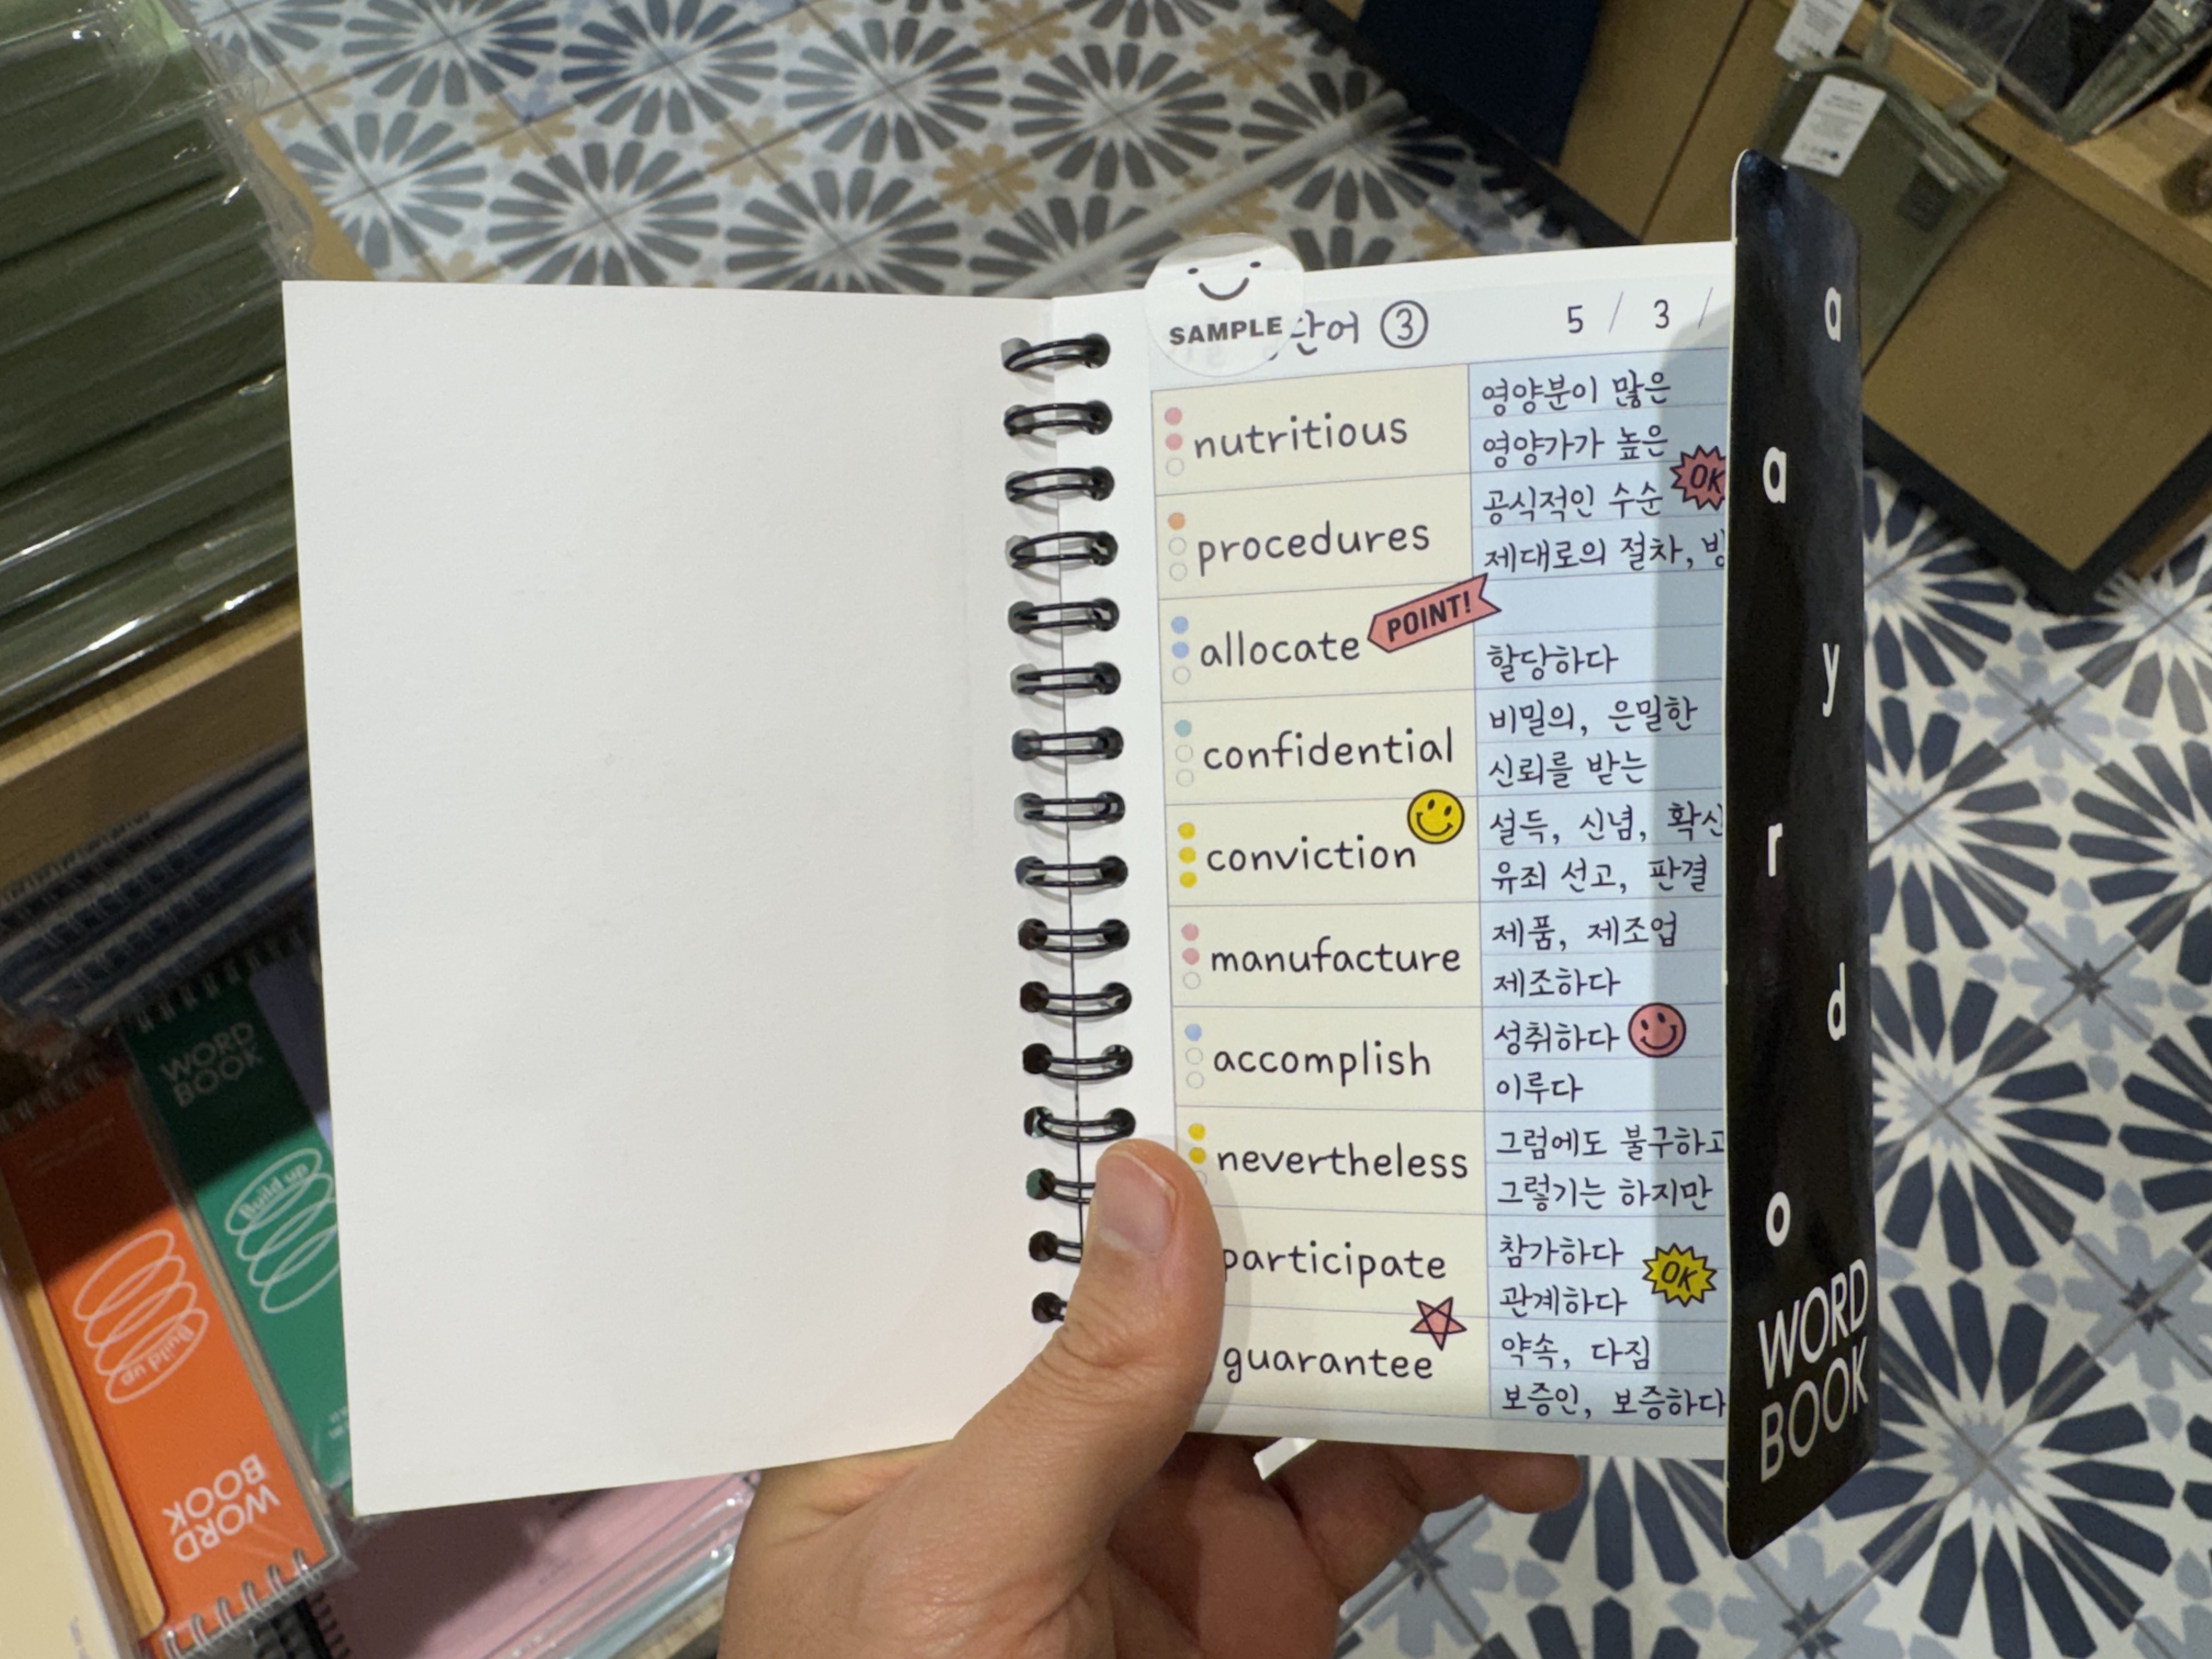 SAMPLE
단어 ③
5 / 3 /
nutritious
영양분이 많은
영양가가 높은
OK
procedures
공식적인 수순
제대로의 절차,
allocate
POINT!
할당하다
confidential
비밀의, 은밀한
신뢰를 받는
conviction
설득, 신념, 확신
유죄 선고, 판결
manufacture
제품, 제조업
제조하다
accomplish
성취하다
이루다
nevertheless
그럼에도 불구하고
그렇기는 하지만
participate
참가하다
관계하다
OK
guarantee
약속, 다짐
보증인, 보증하다
a
a
y
r
d
o
WORD
BOOK
WORD
BOOK
Build up
Build up
Build up
WORD
BOOK